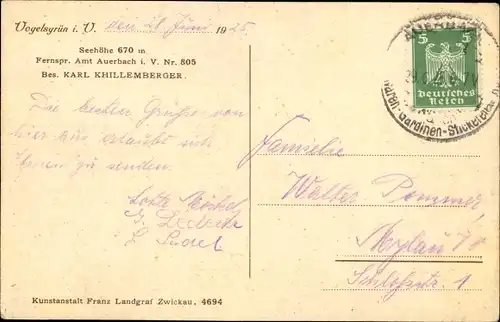 Vogelsgrün i. V. den 28. Juni 1925.
Seehöhe 670 m
Fernspr. Amt Auerbach i. V. Nr. 805
Bes. KARL KHILLEMBERGER.
Die besten Grüße von
hier aus erlaubt sich
Ihnen zu senden.
Lotte
AUERBACH
5 5
Deutsches
Reich
Gardinen-Stickereien
Familie
Walter Pommer,
Mylau i/V.
Schloßstr. 1
Kunstanstalt Franz Landgraf Zwickau, 4694